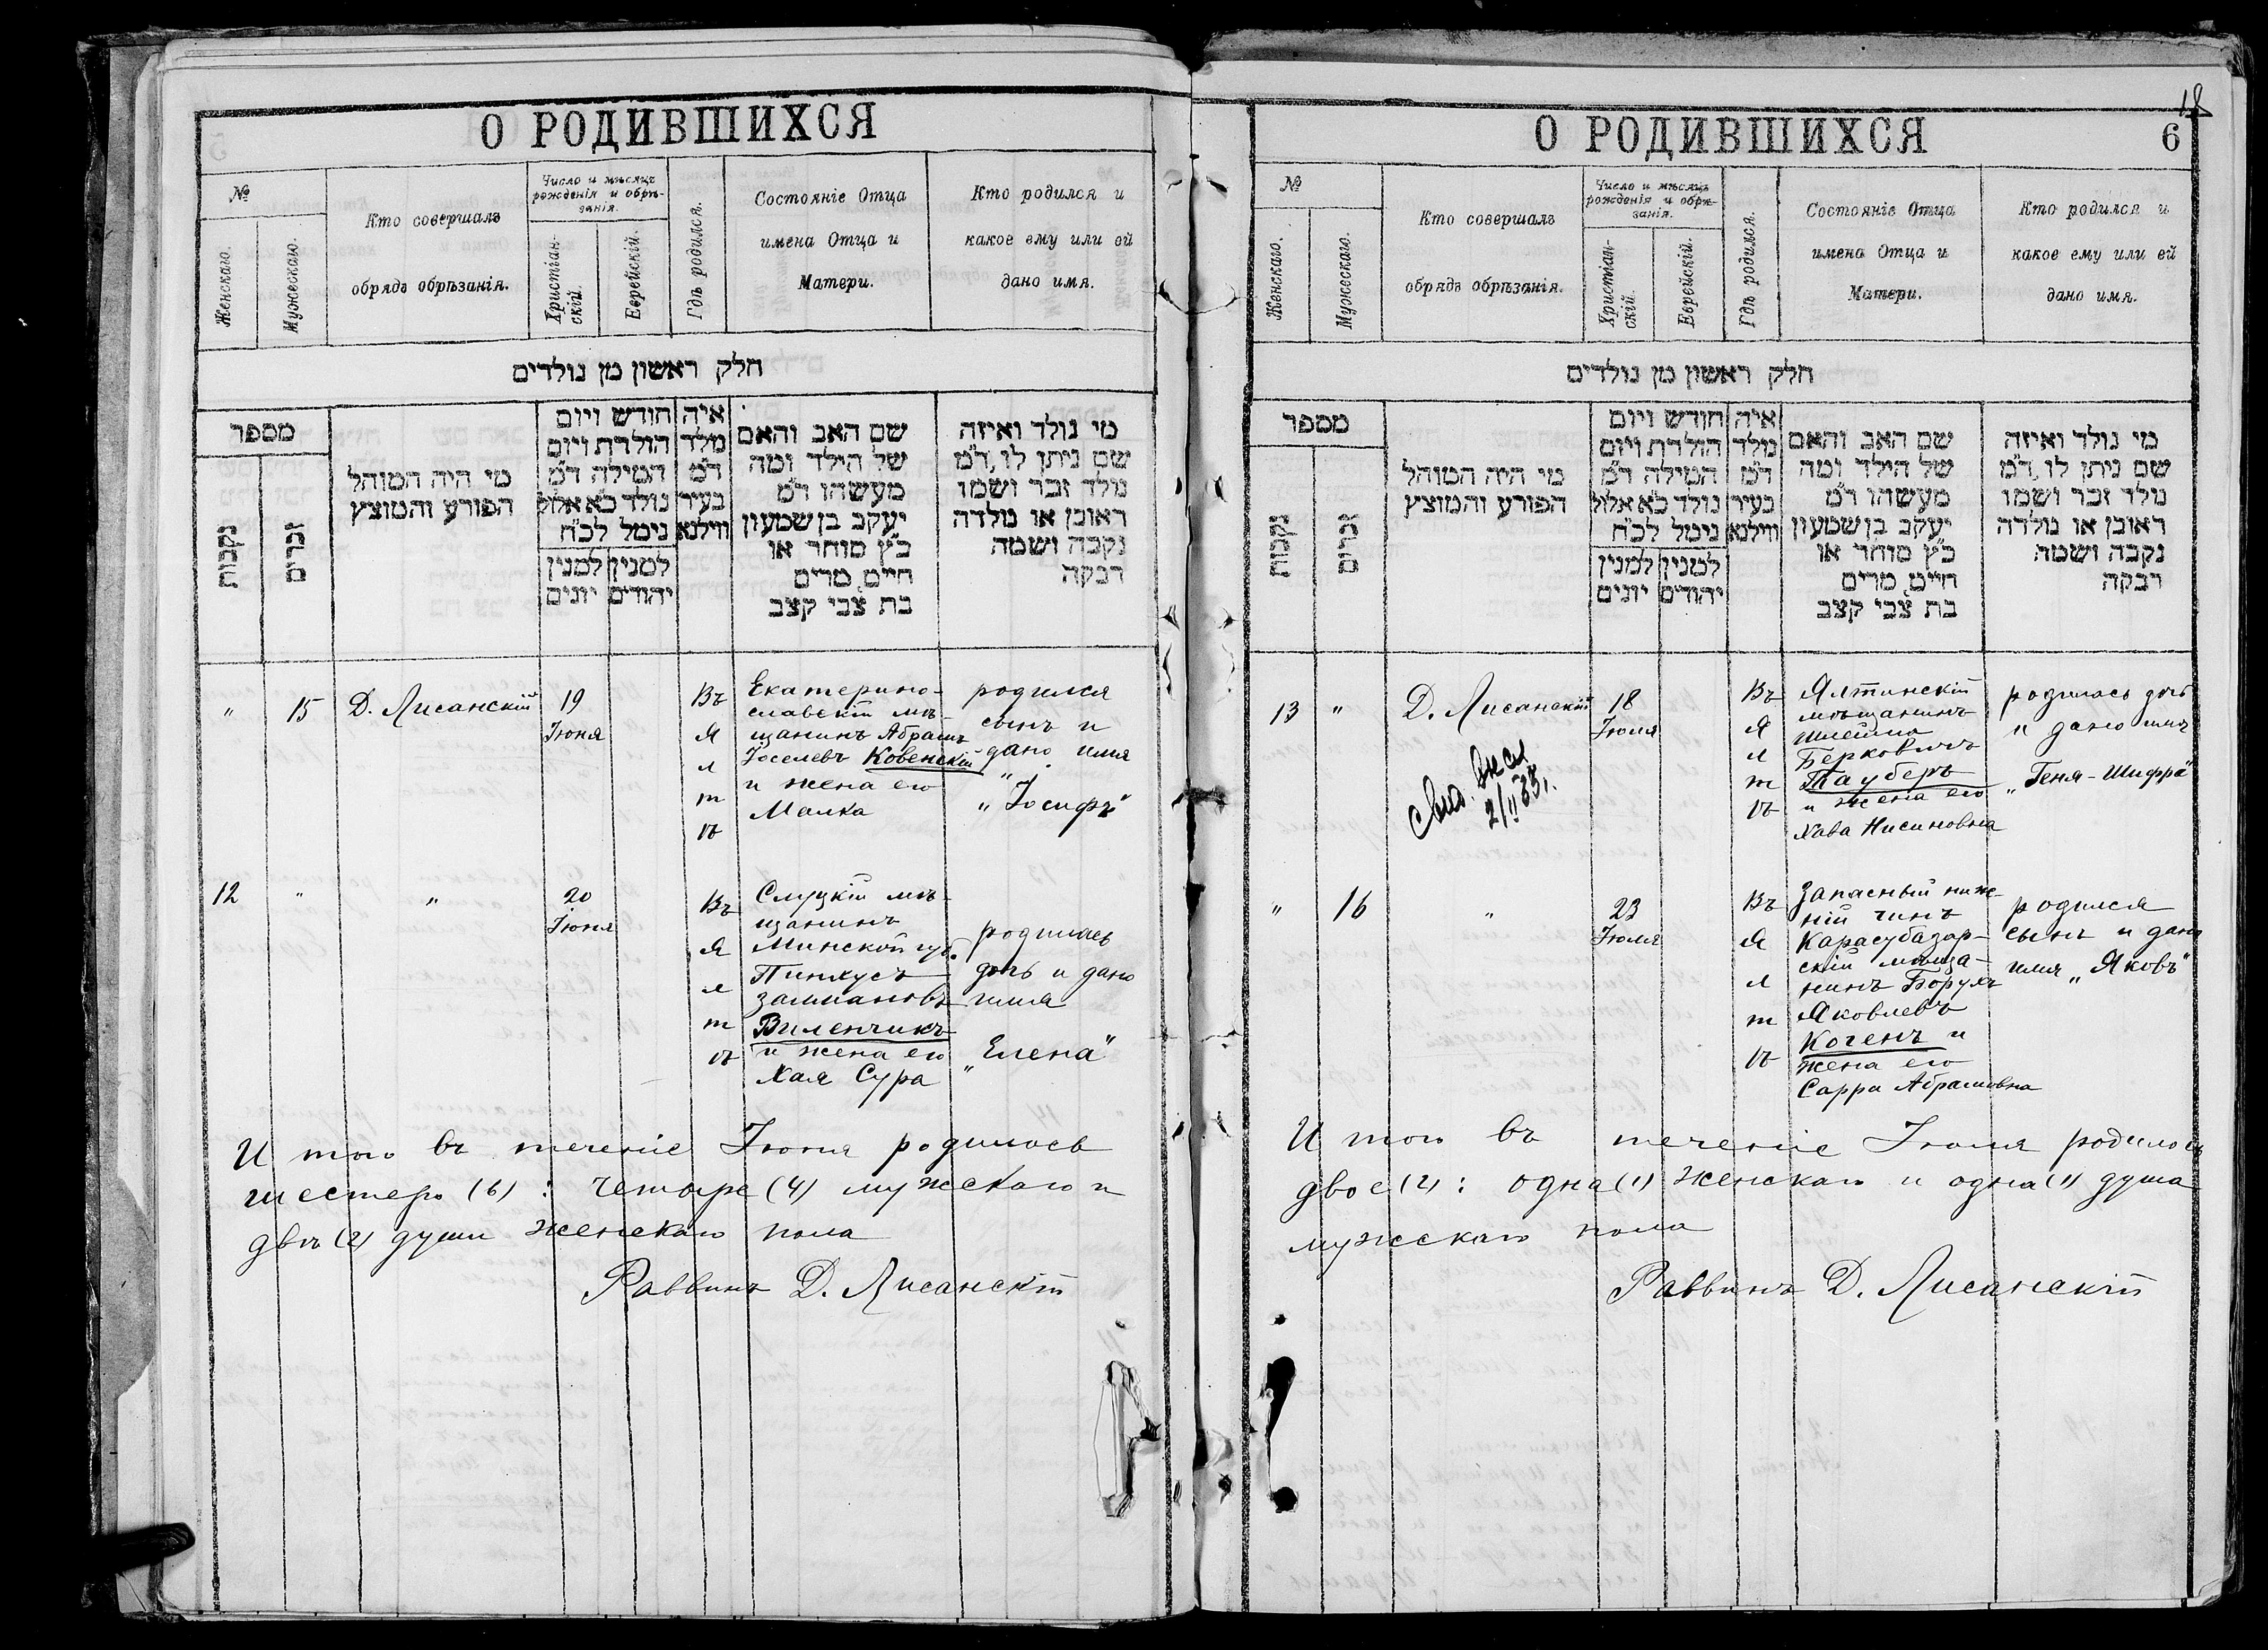 О РОДИВШИХСЯ
№
Женскаго.
Мужескаго.
Кто совершалъ
обрядъ обрѣзанія.
Число и мѣсяцъ
рожденія и обрѣ-
занія.
Христіан-
скій.
Еврейскій.
Гдѣ родился.
Состояніе Отца
имена Отца и
Матери.
Кто родился и
какое ему или ей
дано имя.
חלק ראשון מן נולדים
מספר
נקבות
זכרים
מי היה המוהל
הפורע והמוצץ
חודש ויום
הולדת ויום
המילה ד"מ
נולד כ"א אלול
נימל לכ"ח
למנין
יהודים
למנין
יונים
איה
מלד
ד"מ
בעיר
ווילנא
שם האב והאם
של הילד ומה
מעשהו ד"מ
יעקב בן שמעון
כ"ץ סוחר או
חיים, מרים
בת צבי קצב
מי נולד ואיזה
שם ניתן לו, ד"מ
נולד זכר ושמו
ראובן או נולדה
נקבה ושמה
רבקה
"
15
Д. Лисанскій
19
Іюня
Въ
Я
л
т
ѣ
Екатерино-
славскій мѣ-
щанинъ Абрамъ
Іоселевъ Ковенскій
и жена его
Малка
родился
сынъ и
дано имя
"
„Іосифъ"
12
"
"
20
Іюня
Въ
Я
л
т
ѣ
Слуцкій мѣ-
щанинъ
Минской губ.
Пинхусъ
Залмановъ
Виленчикъ
и жена его
Хая Сура
родилась
дочь и дано
имя
„Елена"
Итого въ теченіе Іюня родилось
шестеро (6): четыре (4) мужскаго и
двѣ (2) души женскаго пола
Раввинъ Д. Лисанскій
18
О РОДИВШИХСЯ
6
№
Женскаго.
Мужескаго.
Кто совершалъ
обрядъ обрѣзанія.
Число и мѣсяцъ
рожденія и обрѣ-
занія.
Христіан-
скій.
Еврейскій.
Гдѣ родился.
Состояніе Отца
имена Отца и
Матери.
Кто родился и
какое ему или ей
дано имя.
חלק ראשון מן נולדים
מספר
נקבות
זכרים
מי היה המוהל
הפורע והמוצץ
חודש ויום
הולדת ויום
המילה ד"מ
נולד כ"א אלול
נימל לכ"ח
למנין
יהודים
למנין
יונים
איה
מלד
ד"מ
בעיר
ווילנא
שם האב והאם
של הילד ומה
מעשהו ד"מ
יעקב בן שמעון
כ"ץ סוחר או
חיים, מרים
בת צבי קצב
מי נולד ואיזה
שם ניתן לו, ד"מ
נולד זכר ושמו
ראובן או נולדה
נקבה ושמה
רבקה
13
"
Д. Лисанскій
18
Іюля
Въ
Я
л
т
ѣ
Ялтинскій
мѣщанинъ
Шлейма
Берковичъ
Тауберъ
и жена его
Хава Нисиновна
родилась дочь
и дано имя
„Геня-Шифра"
"
16
"
23
Іюля
Въ
Я
л
т
ѣ
Запасный ниж-
ній чинъ
Карасубазар-
скій мѣща-
нинъ Борухъ
Яковлевъ
Когенъ и
жена его
Сарра Абрамовна
родился
сынъ и дано
имя „Яковъ"
Итого въ теченіе Іюля родилось
двое (2): одна (1) женскаго и одна (1) душа
мужскаго пола
Раввинъ Д. Лисанскій